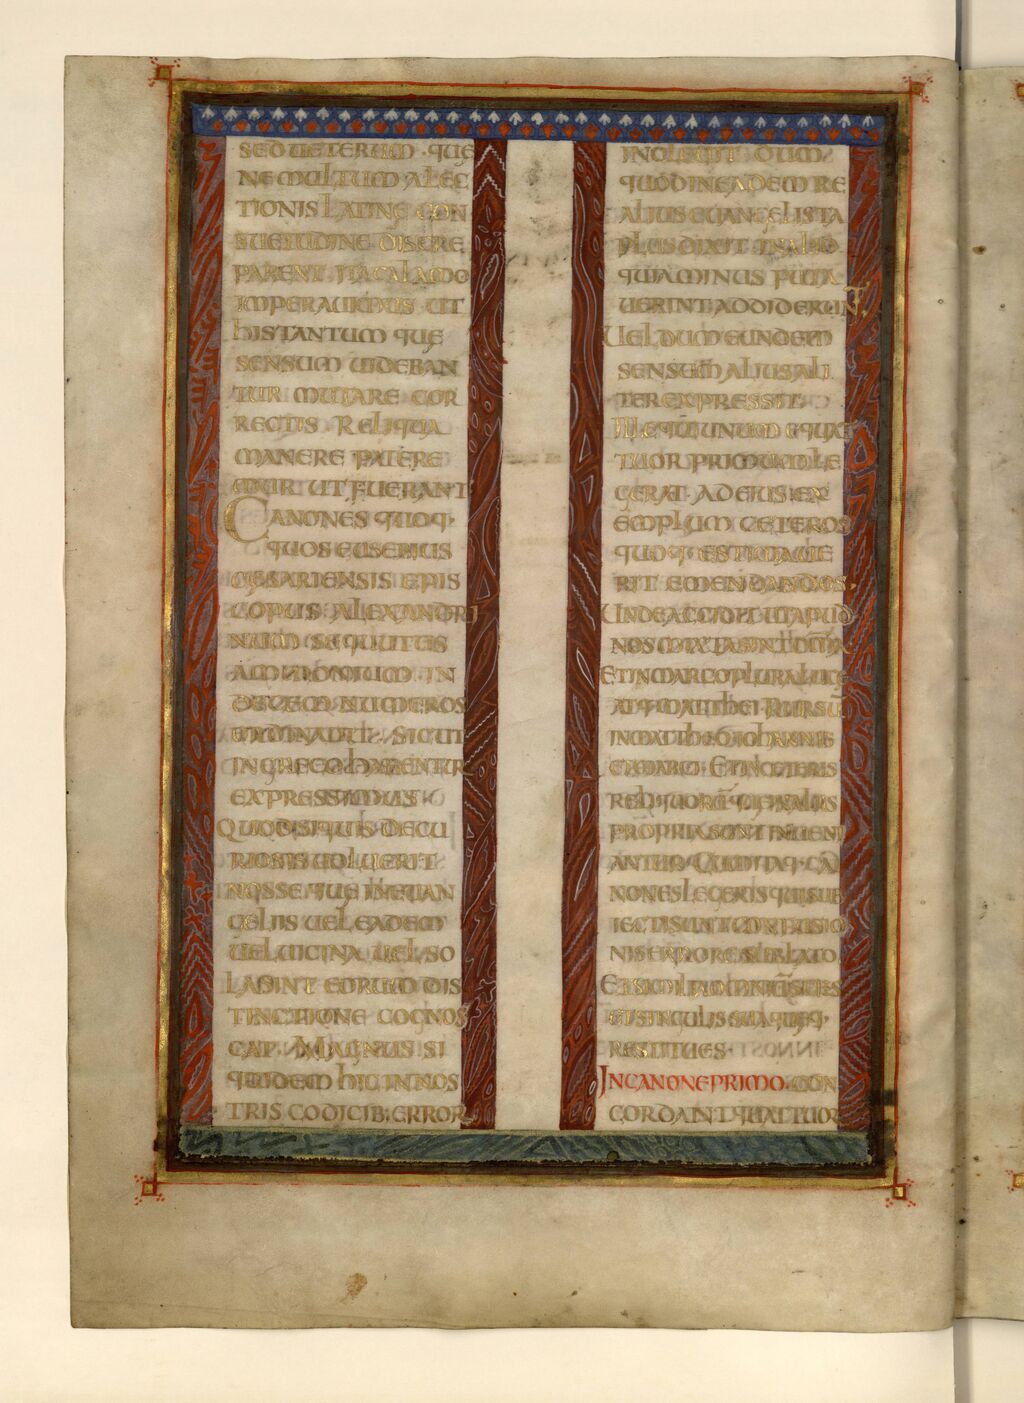 SED UETERUM · QUE
NE MULTUM A LEC
TIONIS LATINE CON
SUETUDINE DISCRE
PARENT · ITA CALAMO
IMPERAUIMUS UT
HIS TANTUM QUE
SENSUM UIDEBAN
TUR MUTARE COR
RECTIS · RELIQUA
MANERE PATERE
MUR UT FUERANT·
CANONES QUOQ·
QUOS EUSEBIUS
CESARIENSIS EPIS
COPUS ALEXANDRI
NUM SEQUUTUS
AMMONIUM IN
DECEM NUMEROS
ORDINAUIT· SICUT
IN GRECO HABENTUR
EXPRESSIMUS
QUOD SI QUIS DE CU
RIOSIS UOLUERIT
NOSSE QUE IN EUAN
GELIIS UEL EADEM
UEL UICINA UEL SO
LA SINT EORUM DIS
TINCTIONE COGNOS
CAT· MAGNUS SI
QUIDEM HIC IN NOS
TRIS CODICIB: ERROR
INOLEUIT DUM
QUOD IN EADEM RE
ALIUS EUANGELISTA
PLUS DIXIT IN ALIO
QUIA MINUS PUTA
UERINT ADDIDERUNT·
UEL DUM EUNDEM
SENSUM ALIUS ALI
TER EXPRESSIT·
ILLE QUI UNUM E QUAT
TUOR PRIMUM LE
GERAT· AD EIUS EX
EMPLUM CETEROS
QUOQ· ESTIMAUE
RIT EMENDANDOS·
UNDE ACCIDIT UT APUD
NOS MIXTA SINT OMĪA
ET IN MARCO PLURA LUCE
ATQ· MATTHEI· RURSU
IN MATTHEO IOHANNIS
ET MARCI· ET IN CETERIS
RELIQUORŪ QUE ALIIS
PROPRIA SUNT INUENI
ANTUR· CUM ITAQ· CA
NONES LEGERIS QUI SUB
IECTI SUNT CONFUSIO
NIS ERRORE SUBLATO
ET SIMILIA OMNIŪ SCIES
ET SINGULIS SUA QUEQ·
RESTITUES·
IN CANONE PRIMO· CON
CORDANT QUATTUOR